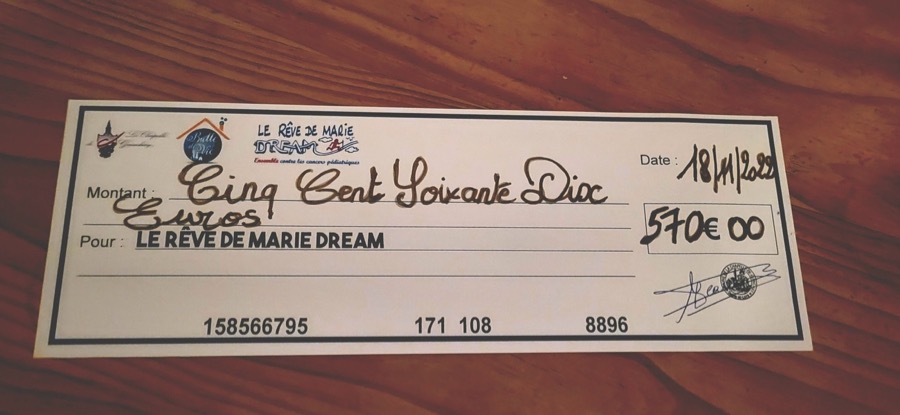 LE RÊVE DE MARIE
DREAM
Ensemble contre les cancers pédiatriques
Date : 18/11/2022
Montant : Cinq Cent Soixante Dixc
Euros
570€ 00
Pour : LE RÊVE DE MARIE DREAM
158566795 171 108 8896